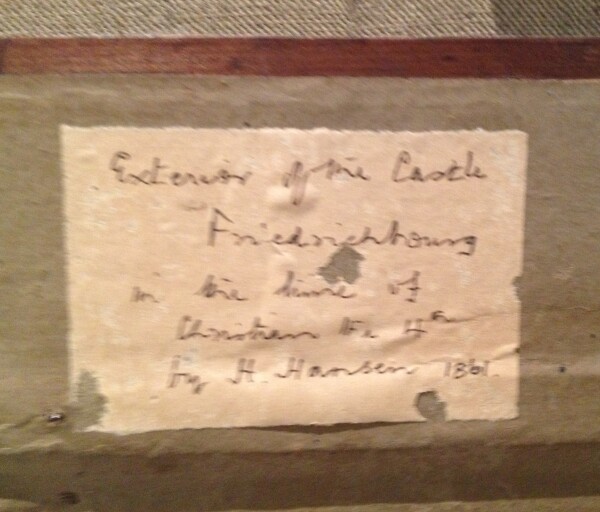 Exterior of the Castle
Friedrichbourg
in the time of
Christian the 4th
by H. Hansen 1861.